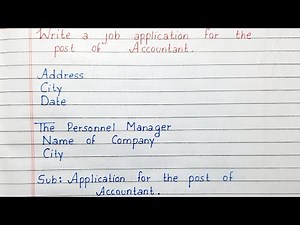 Write a job application for the
post of Accountant.
Address
City
Date
The Personnel Manager
Name of Company
City
Sub: Application for the post of
Accountant.